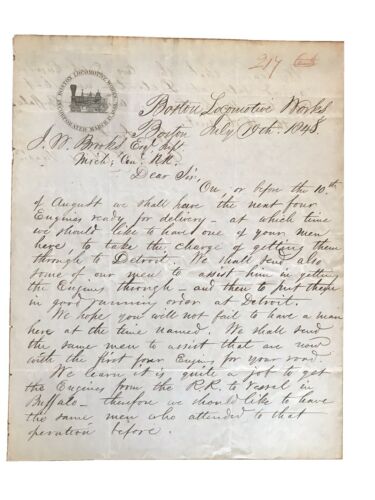 217
BOSTON LOCOMOTIVE WORKS
INCORPORATED MARCH
Boston Locomotive Works
Boston July 19th. 1848.
J. W. Brooks Esqr Supt.
Mich: Cen: R.R.
Dear Sir,
On, or before the 10th
of August we shall have the next four
Engines ready for delivery – at which time
we should like to have one of your men
here, to take the charge of getting them
through to Detroit. We shall send also
some of our men to assist him in getting
the Engines through – and then to put them
in good running order at Detroit.
We hope you will not fail to have a man
here at the time named. We shall send
the same men to assist that are now
with the first four Engines for your road.
We learn it is quite a job to get
the Engines from the R.R. to Vessel in
Buffalo – therefore we should like to have
the same men who attended to that
operation before.